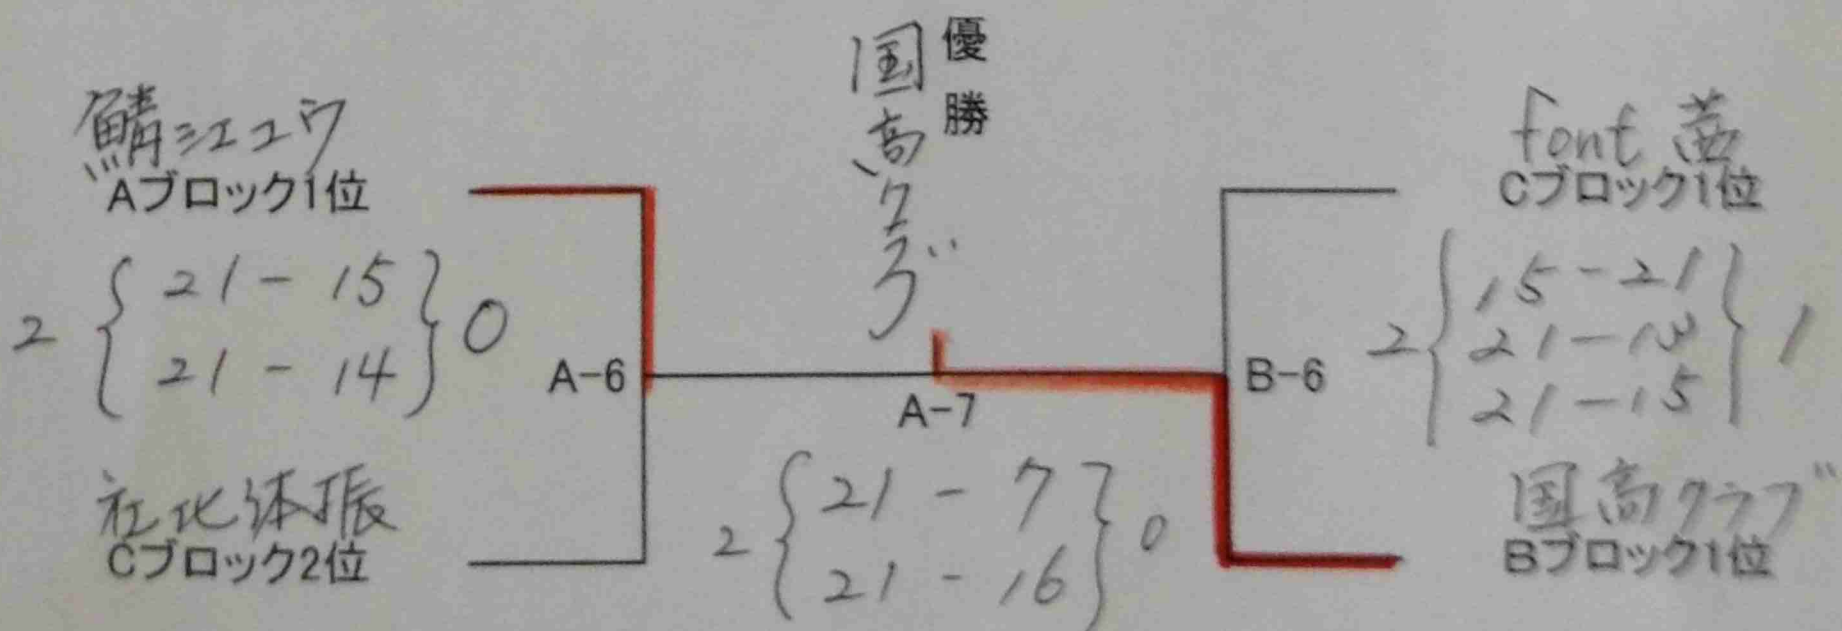 優勝
国高クラブ
鯖江ユウ
Aブロック1位
2 { 21 - 15 } 0
21 - 14
A-6
社北体振
Cブロック2位
A-7
2 { 21 - 7 } 0
21 - 16
font 茜
Cブロック1位
15 - 21
2 { 21 - } 1
21 - 15
B-6
国高クラブ
Bブロック1位